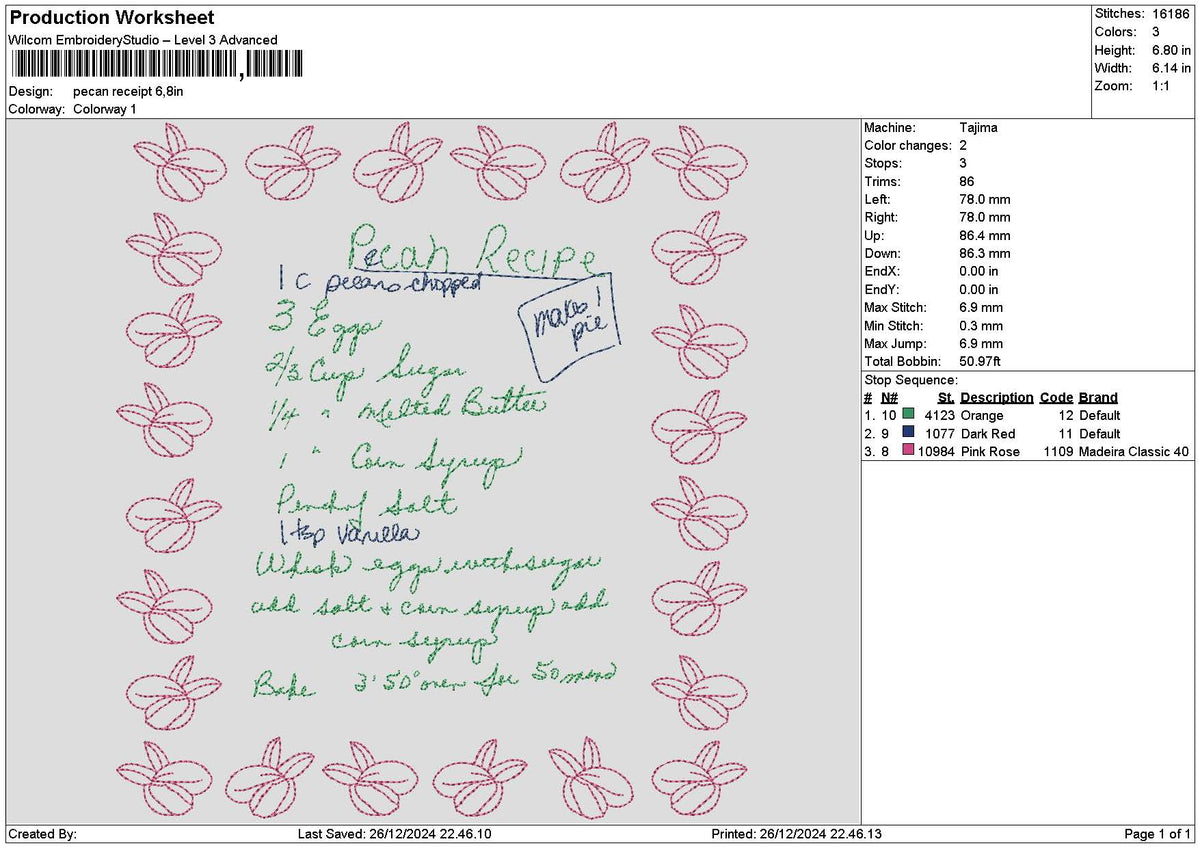 Production Worksheet
Wilcom EmbroideryStudio – Level 3 Advanced
,
Design: pecan receipt 6,8in
Colorway: Colorway 1
Stitches: 16186
Colors: 3
Height: 6.80 in
Width: 6.14 in
Zoom: 1:1
Pecan Recipe
1 c pecans chopped
makes 1
pie
3 Eggs
2/3 Cup Sugar
1/4 " Melted Butter
1 " Corn Syrup
Pinch of Salt
1 tsp Vanilla
Whisk eggs with sugar
add salt & corn syrup add
corn syrup
Bake 3'50° oven for 50 mins
Machine: Tajima
Color changes: 2
Stops: 3
Trims: 86
Left: 78.0 mm
Right: 78.0 mm
Up: 86.4 mm
Down: 86.3 mm
EndX: 0.00 in
EndY: 0.00 in
Max Stitch: 6.9 mm
Min Stitch: 0.3 mm
Max Jump: 6.9 mm
Total Bobbin: 50.97ft
Stop Sequence:
# N# St. Description Code Brand
1. 10 4123 Orange 12 Default
2. 9 1077 Dark Red 11 Default
3. 8 10984 Pink Rose 1109 Madeira Classic 40
Created By: Last Saved: 26/12/2024 22.46.10 Printed: 26/12/2024 22.46.13 Page 1 of 1